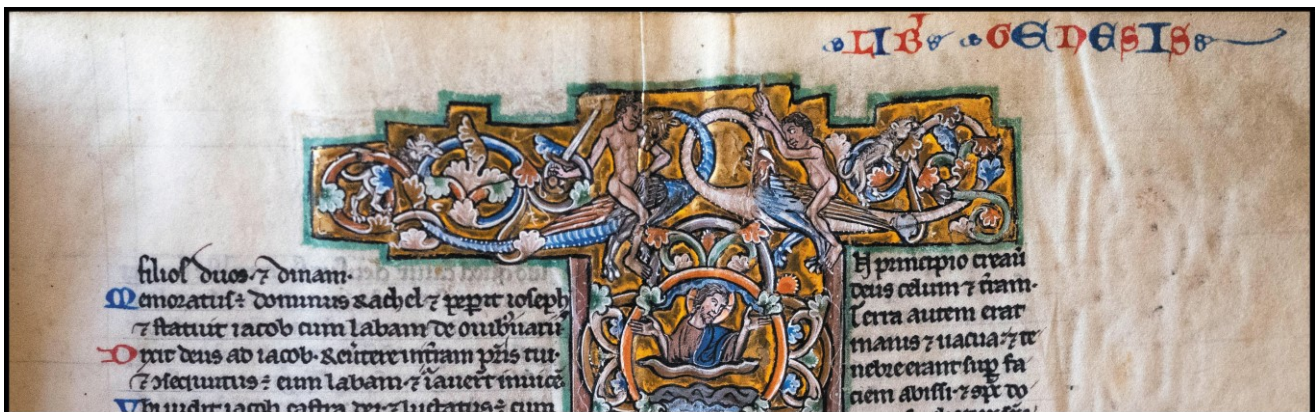 LIBR GENESIS
filios duos ⁊ dinam.
Memoratus ÷ dominus Rachel ⁊ peperit ioseph
⁊ statuit iacob cum labam de ouibꝰ
Dixit deus ad iacob. Reuertere in t̄ram pr̄is tui.
eum labam ⁊
iacob castra dei ⁊ luctatus ÷ cum
N principio creauit
deus celum ⁊ t̄ram.
Terra autem erat
inanis ⁊ uacua ⁊ te
nebre erant sup̄ fa
ciem abissi ⁊ sp̄c do